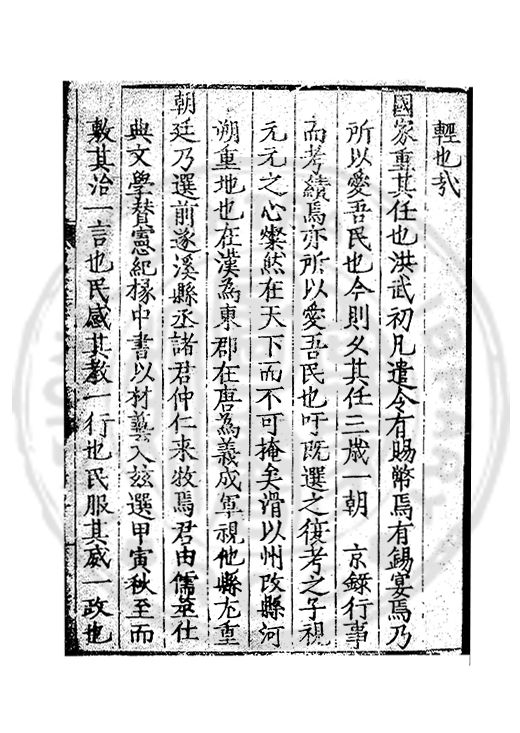 輕也哉
國家重其任也洪武初凡遣令有賜幣焉有錫宴焉乃
所以愛吾民也今則久其任三歲一朝 京錄行事
而考績焉亦所以愛吾民也吁既選之復考之子視
元元之心燦然在天下而不可掩矣滑以州改縣河
朔重地也在漢為東郡在唐為義成軍視他縣尤重
朝廷乃選前遂溪縣丞諸君仲仁来牧焉君由儒莅仕
典文學賛憲紀掾中書以材藝入兹選甲寅秋至而
敷其治一言也民感其教一行也民服其威一政也